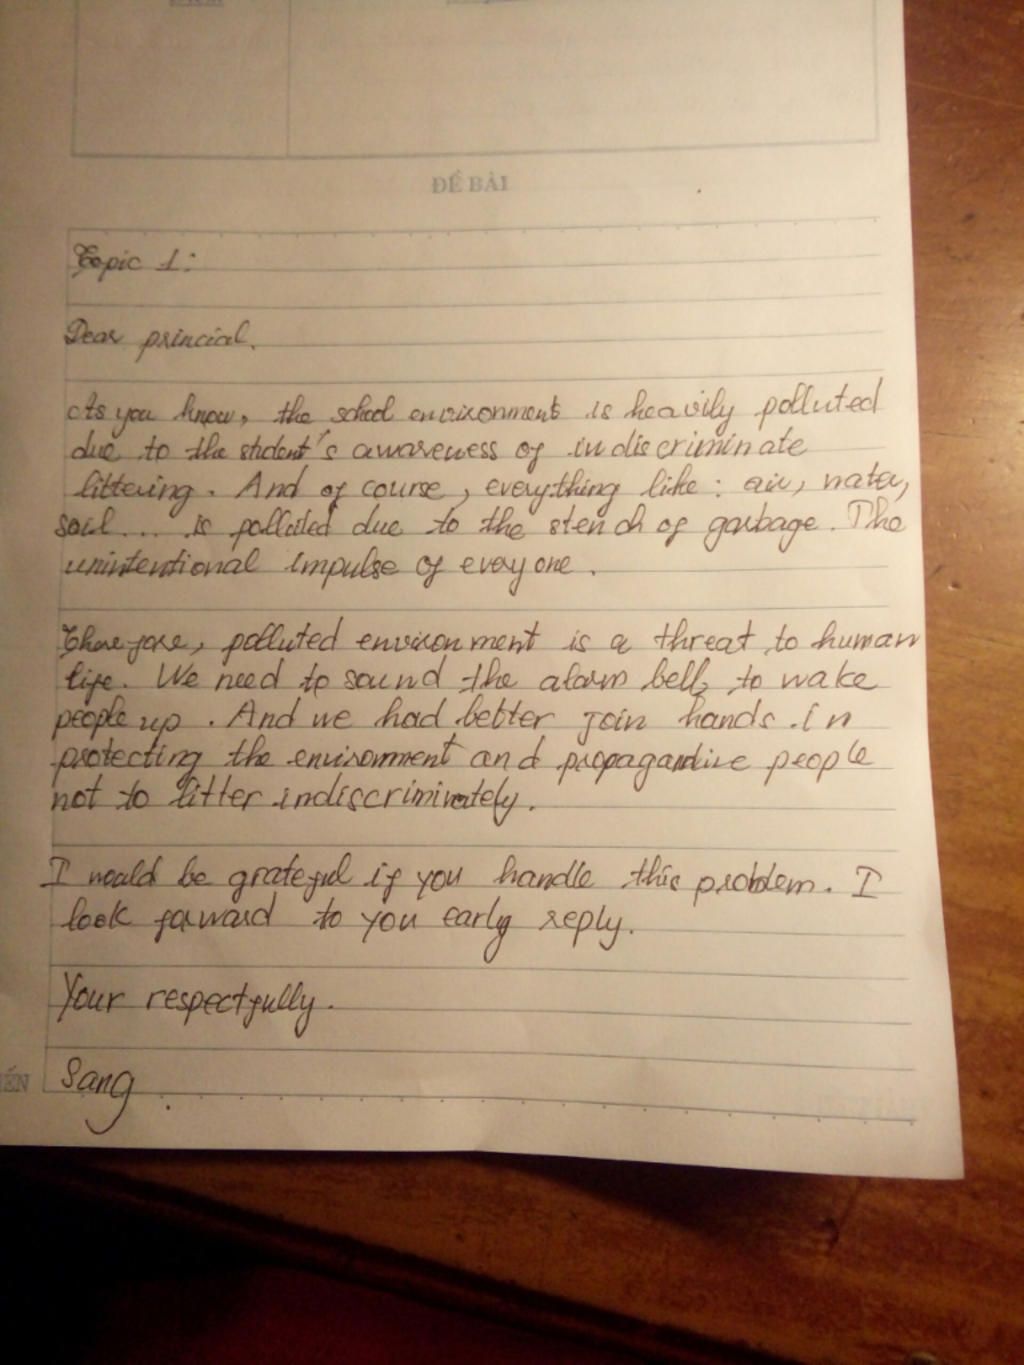 ĐỀ BÀI
Topic 1:
Dear princial.
As you know, the school environment is heavily polluted
due to the student's awareness of indiscriminate
littering. And of course, everything like: air, water,
soil.... is polluted due to the stench of garbage. The
unintentional impulse of everyone.
Therefore, polluted environment is a threat to human
life. We need to sound the alarm bell, to wake
people up. And we had better join hands in
protecting the environment and propagandive people
not to litter indiscriminately.
I would be grateful if you handle this problem. I
look forward to you early reply.
Your respectfully.
Sang